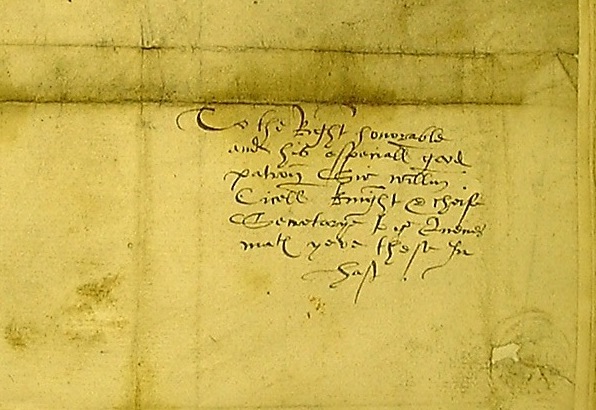 To the Right honorable
and his especiall good
patron Sir willm
Cicell knight & cheife
Secretarye to ye Quenes
matie yeve these In
hast